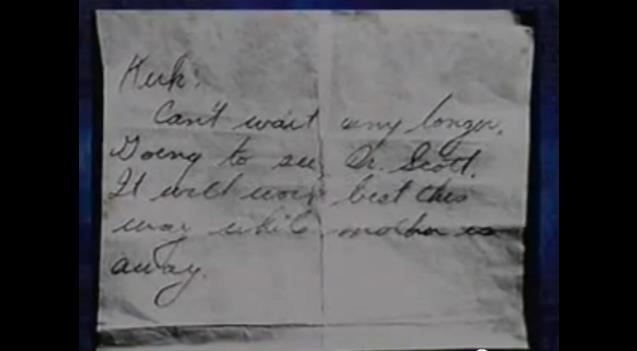 Kirk:
Can't wait any longer.
Going to see Dr. Scott.
It will work best this
way while mother is
away.